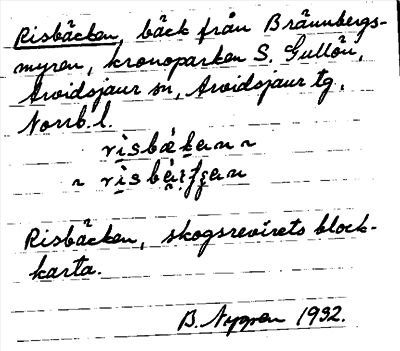 Risbäcken, bäck från Brännbergs-
myren, kronoparken S. Gullön,
Arvidsjaur sn, Arvidsjaur tg,
Norrb. l.
Risbäcken, skogsrevirets block-
karta.
B. Nygren 1932.